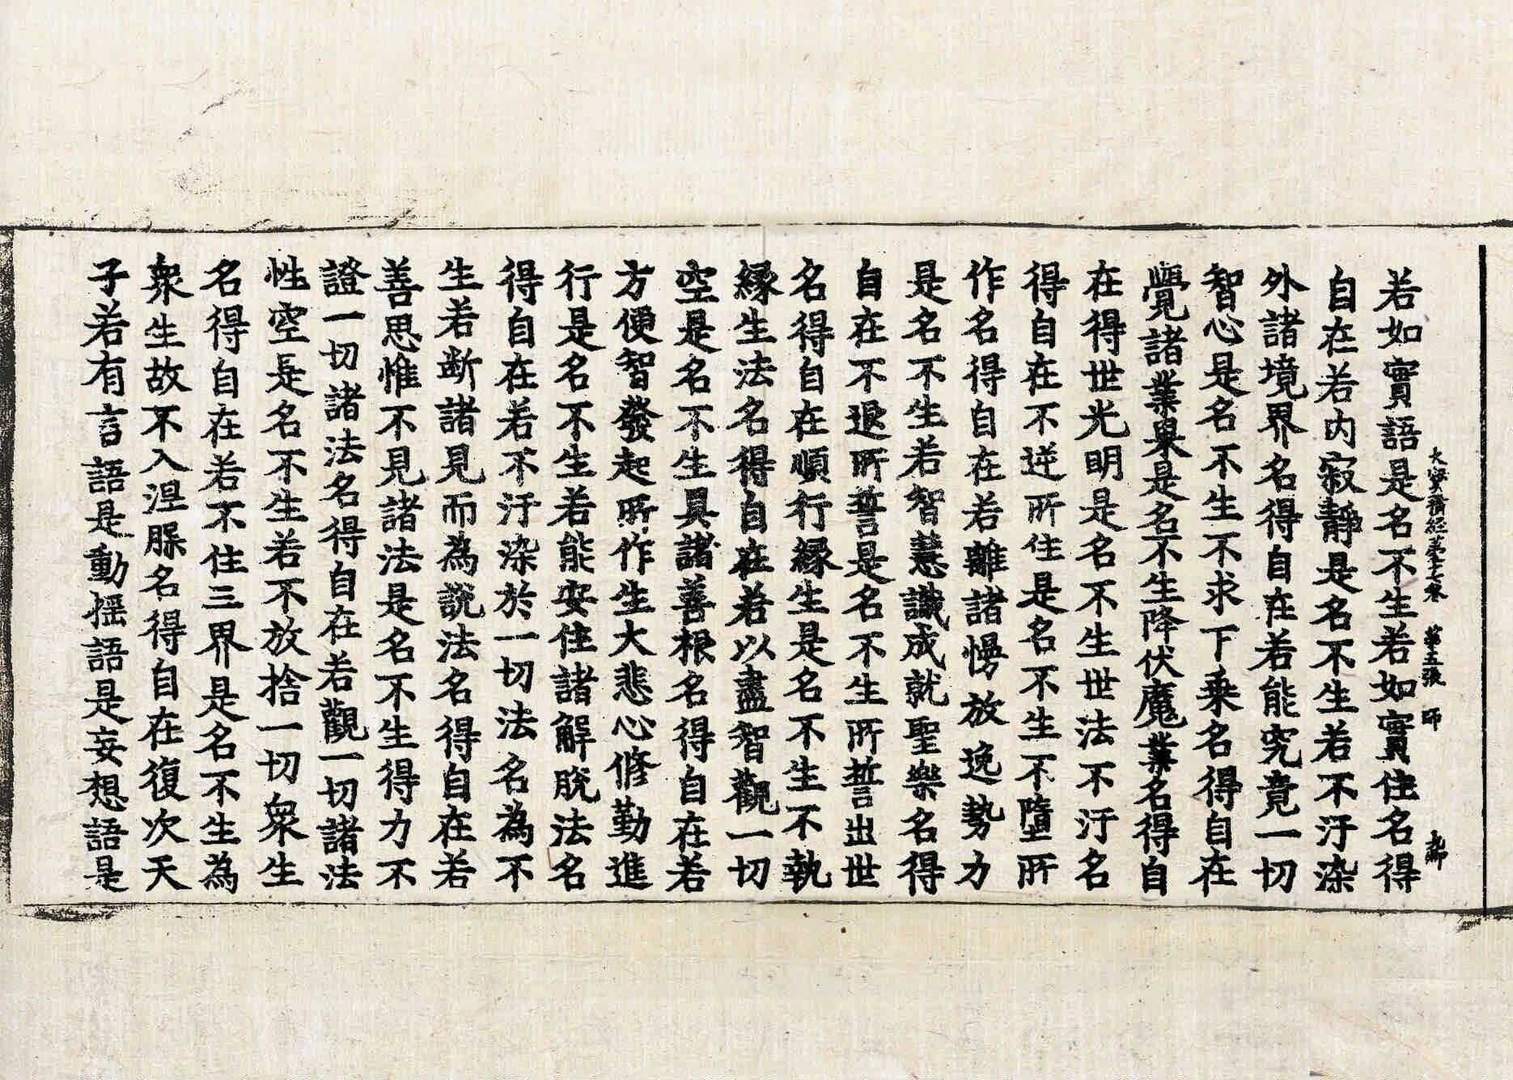 大寶積經第十七卷 第五張 師
若如實語是名不生若如實住名得
自在若内寂靜是名不生若不汙染
外諸境界名得自在若能究竟一切
智心是名不生不求下乘名得自在
覺諸業果是名不生降伏魔業名得自
在得世光明是名不生世法不汙名
得自在不逆所住是名不生不墮所
作名得自在若離諸慢放逸勢力
是名不生若智慧識成就聖樂名得
自在不退所誓是名不生所誓出世
名得自在順行緣生是名不生不執
緣生法名得自在若以盡智觀一切
空是名不生具諸善根名得自在若
方便智發起所作生大悲心修勤進
行是名不生若能安住諸解脫法名
得自在若不汙染於一切法名為不
生若斷諸見而為說法名得自在若
善思惟不見諸法是名不生得力不
證一切諸法名得自在若觀一切諸法
性空是名不生若不放捨一切眾生
名得自在若不住三界是名不生為
眾生故不入涅槃名得自在復次天
子若有言語是動搖語是妄想語是